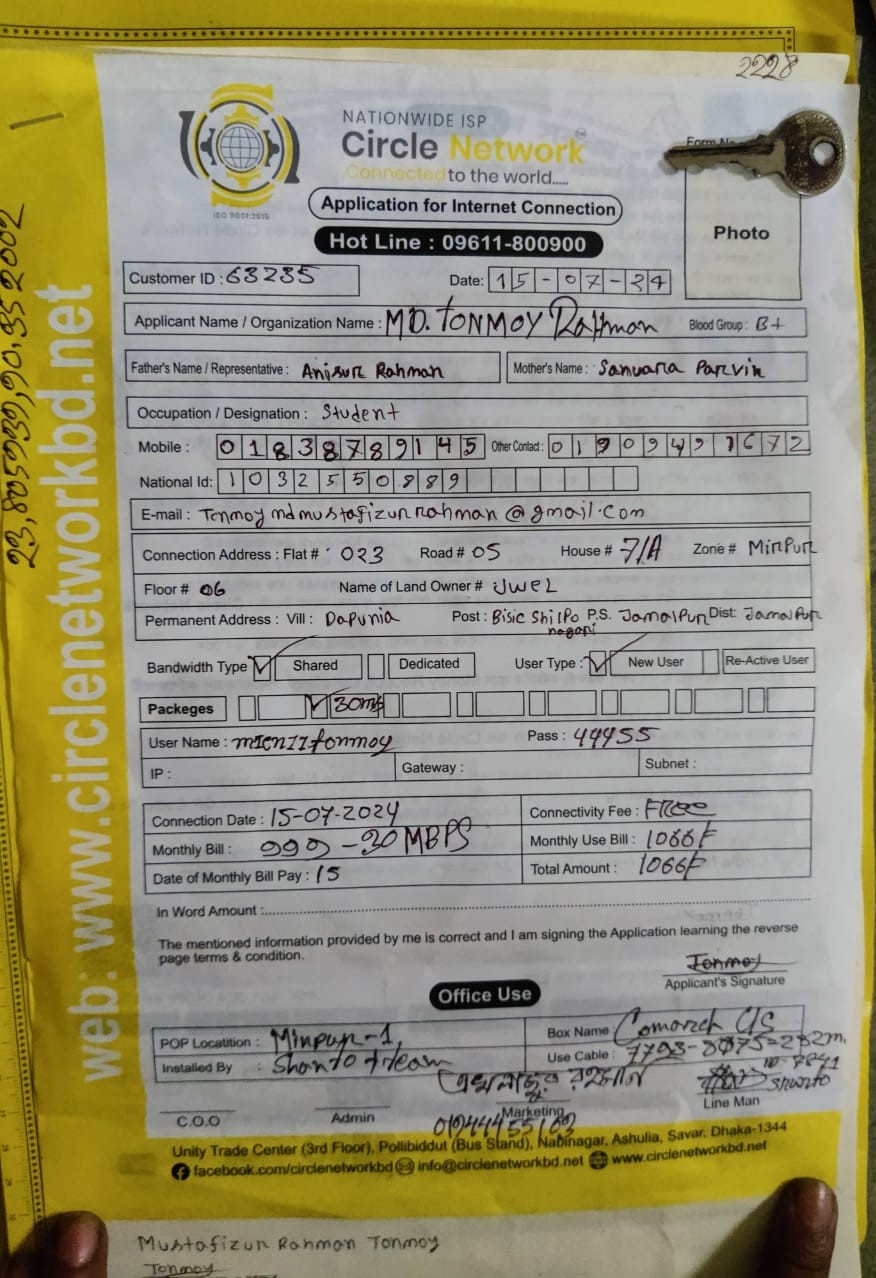 2228
NATIONWIDE ISP
Circle Network
Connected to the world.....
ISO 9001:2015
Application for Internet Connection
Hot Line : 09611-800900
Form No
Photo
Customer ID : 63235
Date: 15-07-24
Applicant Name / Organization Name : MD. TONMOY Rahman Blood Group : B+
Father's Name / Representative : Anisur Rahman Mother's Name : Sanuara Parvin
Occupation / Designation : Student
Mobile : 01838789145 Other Contact : 01909491672
National Id: 1032550889
E-mail : Tonmoymdmustafizurrahman@gmail.com
Connection Address : Flat # 023 Road # 05 House # 7/A Zone # Mirpur
Floor # 06 Name of Land Owner # Jwel
Permanent Address : Vill : Dapunia Post : Bisic Shilpo nagari P.S. Jamalpur Dist: Jamalpur
Bandwidth Type Shared Dedicated User Type : New User Re-Active User
Packeges 30mps
User Name : Pass : 44455
IP : Gateway : Subnet :
Connection Date : 15-07-2024 Connectivity Fee : Free
Monthly Bill : 999 - 30 MBPS Monthly Use Bill : 1066/
Date of Monthly Bill Pay : 15 Total Amount : 1066/
In Word Amount :
The mentioned information provided by me is correct and I am signing the Application learning the reverse
page terms & condition.
Tonmoy
Applicant's Signature
Office Use
POP Locatition : Mirpur-1, Box Name :
Installed By : Shanto + team Use Cable : 7793-8075=282m,
ID-7841
Shanto
C.O.O Admin Marketing Line Man
Unity Trade Center (3rd Floor), Pollibiddut (Bus Stand), Nabinagar, Ashulia, Savar, Dhaka-1344
facebook.com/circlenetworkbd info@circlenetworkbd.net www.circlenetworkbd.net
web: www.circlenetworkbd.net
23,805939,90,352002
Mustafizur Rahman Tonmoy
Tonmoy